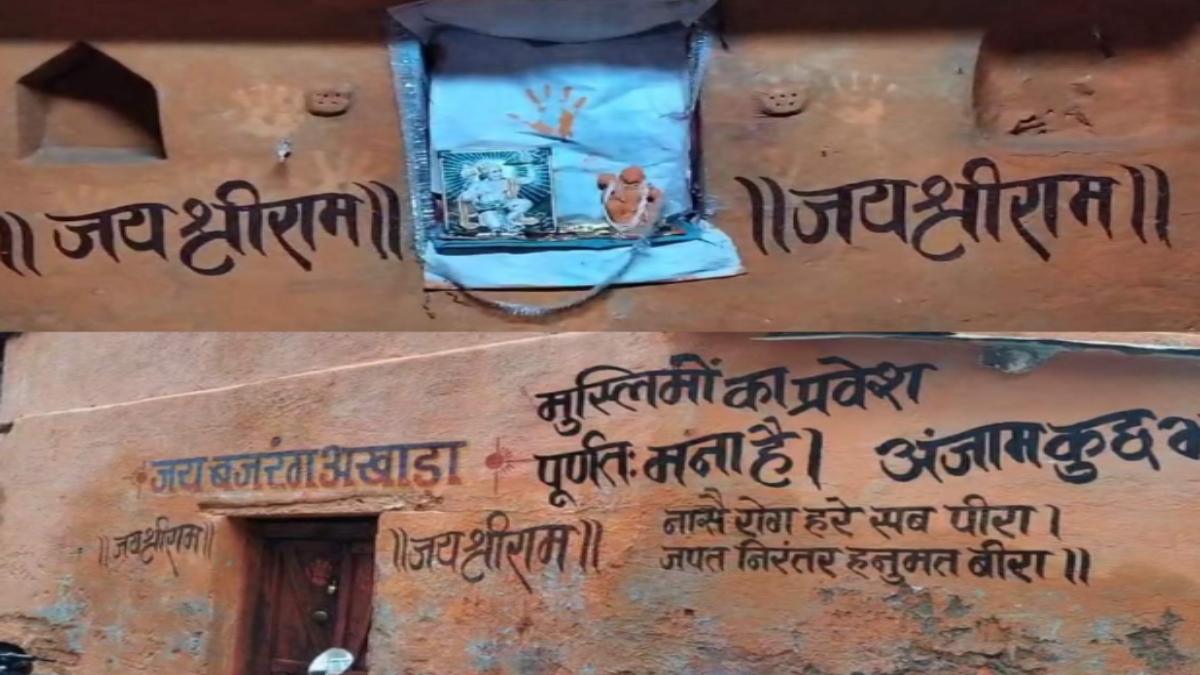 ॥ जय श्रीराम ॥
॥ जय श्रीराम ॥
मुस्लिमों का प्रवेश
पूर्णतः मना है। अंजाम कुछ
जय बजरंग अखाडा
॥ जय श्रीराम ॥
॥ जय श्रीराम ॥
नासै रोग हरे सब पीरा।
जपत निरंतर हनुमत बीरा॥